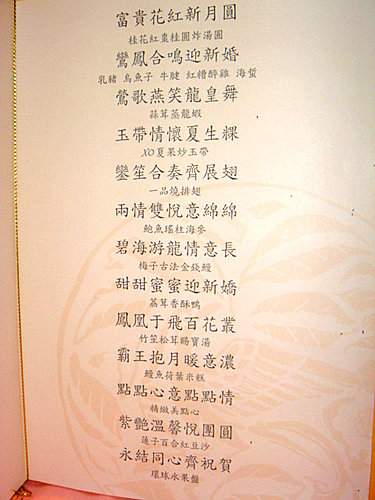 富貴花紅新月圓
桂花紅棗桂圓炸湯圓
鸞鳳合鳴迎新婚
乳豬 烏魚子 牛腱 紅糟醉雞 海蜇
鶯歌燕笑龍皇舞
蒜茸蒸龍蝦
玉帶情懷夏生粿
XO夏果炒玉帶
鑾笙合奏齊展翅
一品燒排翅
兩情雙悅意綿綿
鮑魚瑤柱海參
碧海游龍情意長
梅子古法金錢鰻
甜甜蜜蜜迎新嬌
荔茸香酥鴨
鳳凰于飛百花叢
竹笙松茸賜寶湯
霸王抱月暖意濃
鰻魚荷葉米糕
點點心意點點情
精緻美點心
紫艷溫馨悅團圓
蓮子百合紅豆沙
永結同心齊祝賀
環球水果盤